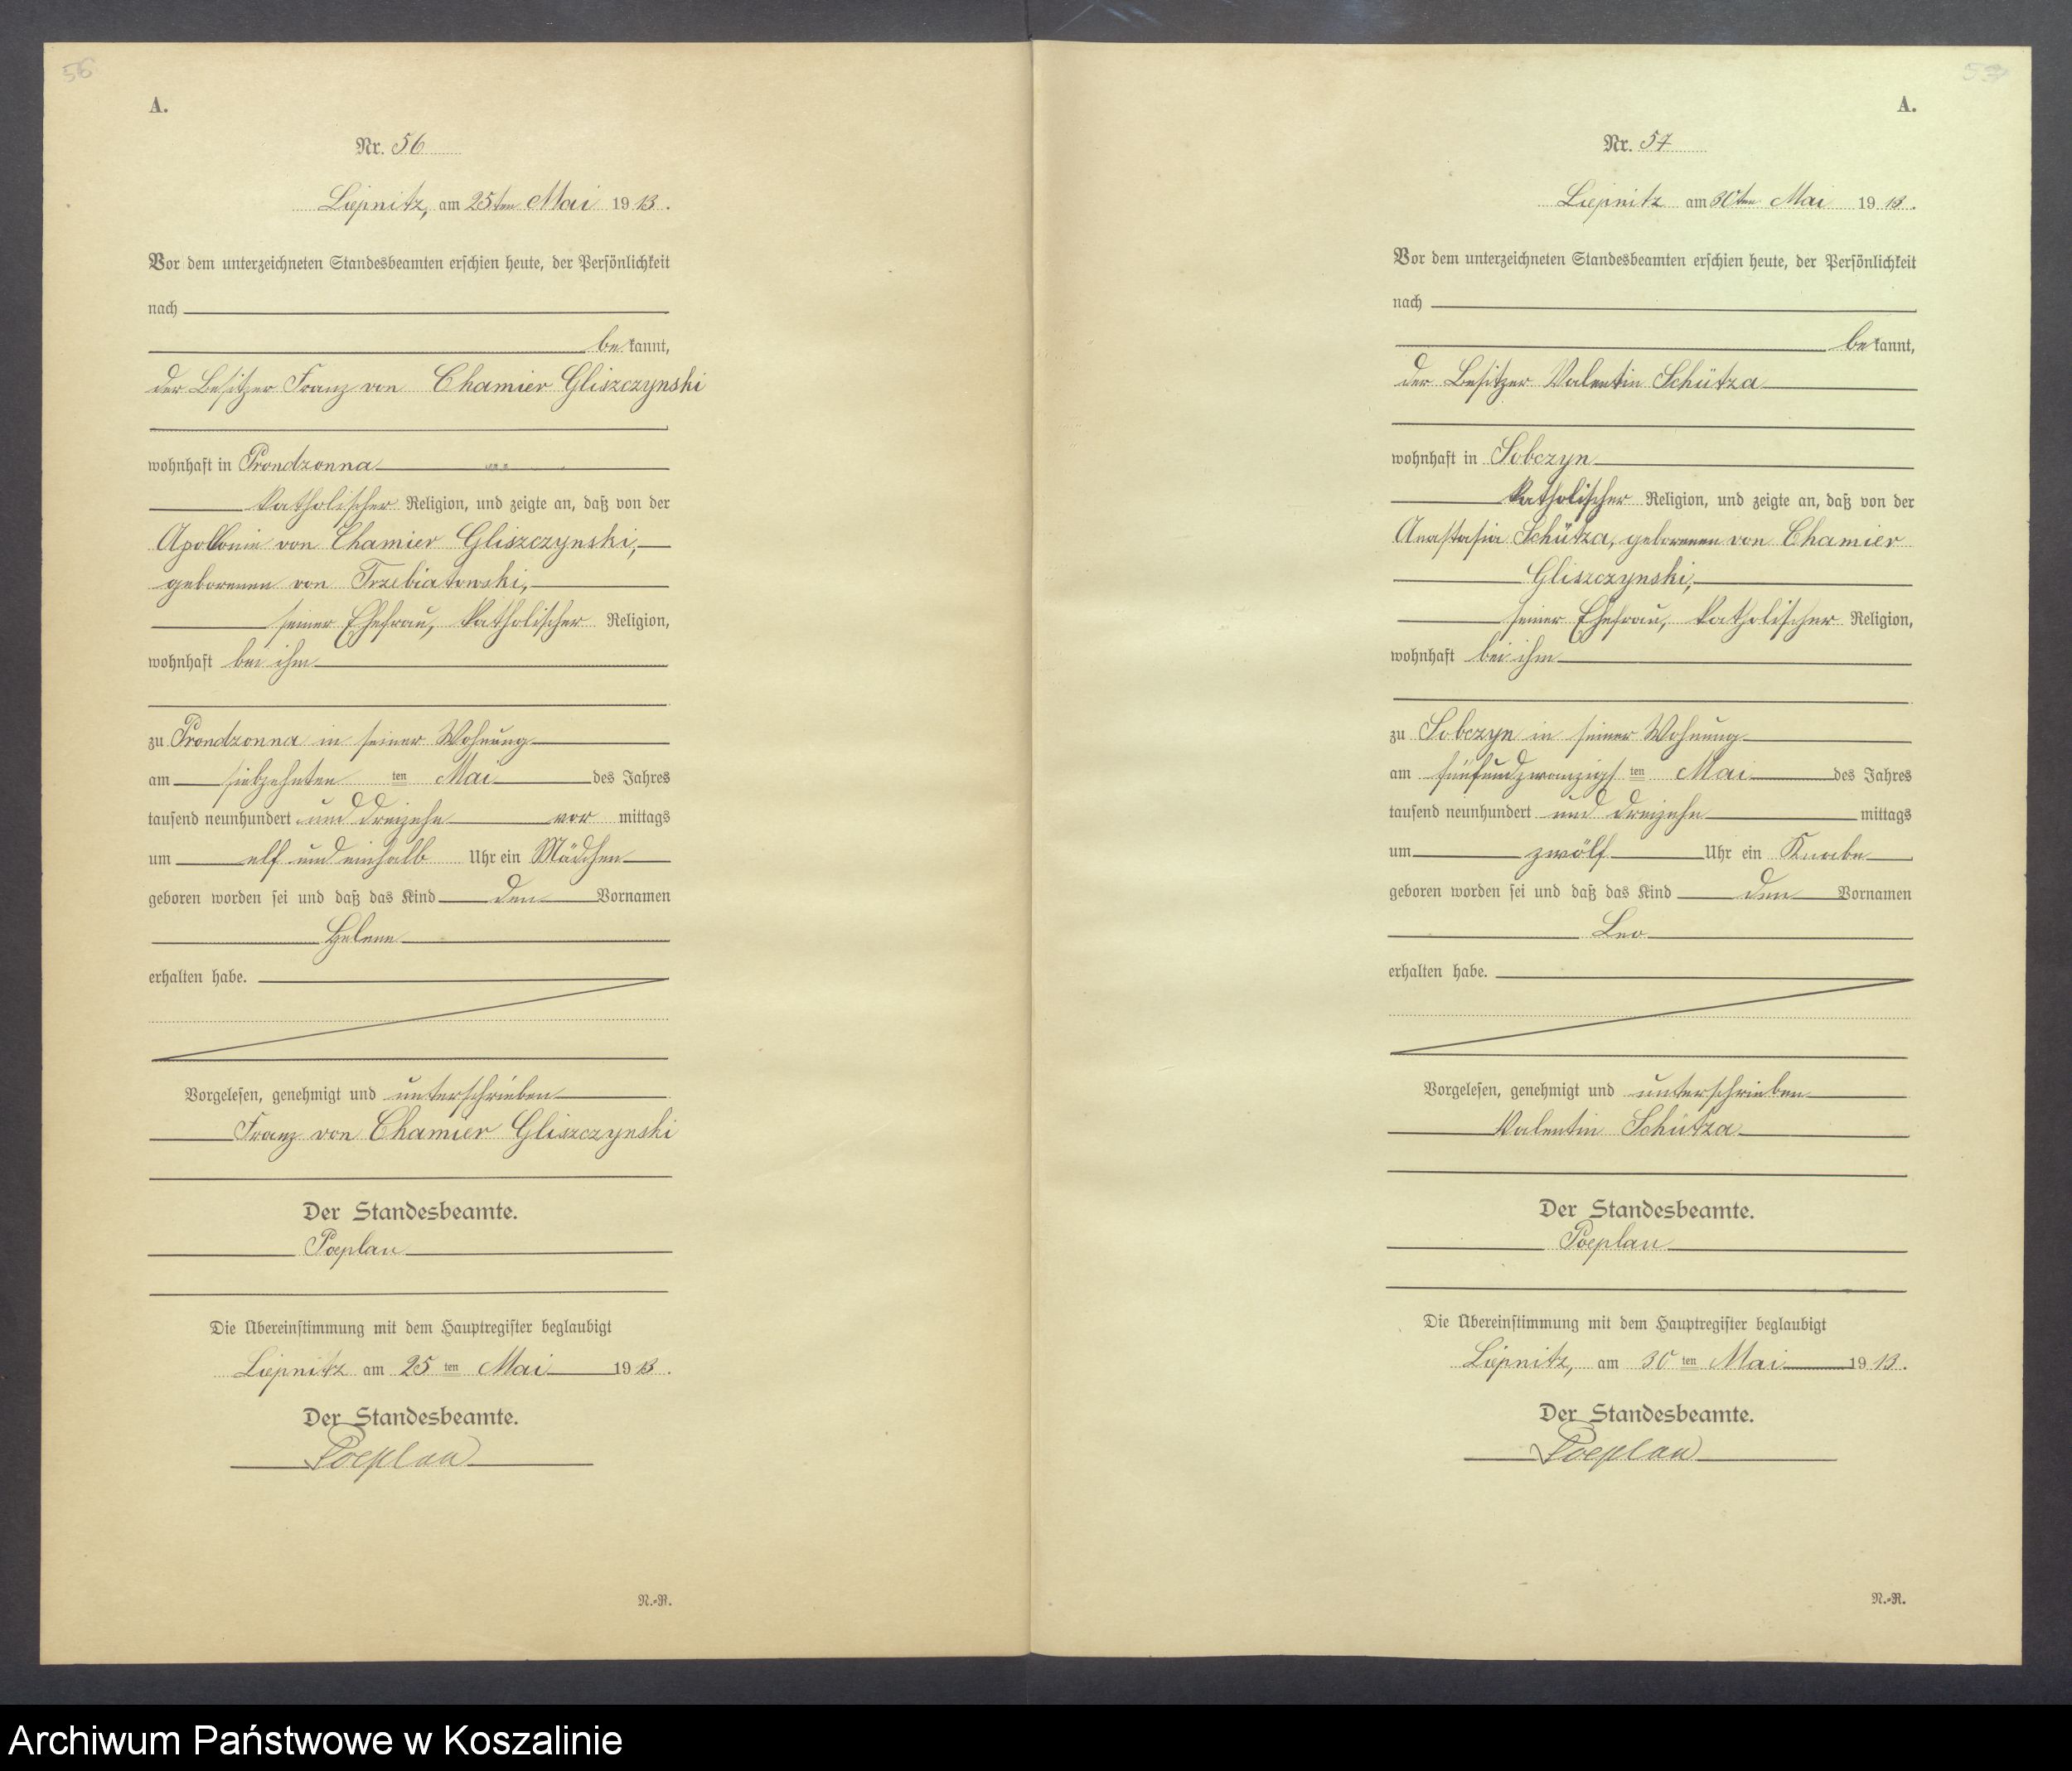 56
A.
Nr. 56
Liepnitz, am 25ten Mai 1913.
Vor dem unterzeichneten Standesbeamten erschien heute, der Persönlichkeit
nach
bekannt,
der Besitzer Franz von Chamier Gliszczynski
wohnhaft in Prondzonna
katholischer Religion, und zeigte an, daß von der
Apollonia von Chamier Gliszczynski,
geborenen von Trzebiatowski,
seiner Ehefrau, katholischer Religion,
wohnhaft bei ihm
zu Prondzonna in seiner Wohnung
am siebzehnten ten Mai des Jahres
tausend neunhundert und dreizehn vor mittags
um elf und einhalb Uhr ein Mädchen
geboren worden sei und daß das Kind den Vornamen
Helene
erhalten habe.
Vorgelesen, genehmigt und unterschrieben
Franz von Chamier Gliszczynski
Der Standesbeamte.
Poeplau
Die Übereinstimmung mit dem Hauptregister beglaubigt
Liepnitz am 25 ten Mai 1913.
Der Standesbeamte.
Poeplau
N.-R.
A.
Nr. 57
Liepnitz am 30ten Mai 1913.
Vor dem unterzeichneten Standesbeamten erschien heute, der Persönlichkeit
nach
bekannt,
der Besitzer Valentin Schütza
wohnhaft in Sobczyn
katholischer Religion, und zeigte an, daß von der
Anastasia Schütza, geborenen von Chamier
Gliszczynski,
seiner Ehefrau, katholischer Religion,
wohnhaft bei ihm
zu Sobczyn in seiner Wohnung
am fünfundzwanzigs ten Mai des Jahres
tausend neunhundert und dreizehn mittags
um zwölf Uhr ein Knabe
geboren worden sei und daß das Kind den Vornamen
Leo
erhalten habe.
Vorgelesen, genehmigt und unterschrieben
Valentin Schütza
Der Standesbeamte.
Poeplau
Die Übereinstimmung mit dem Hauptregister beglaubigt
Liepnitz, am 30 ten Mai 1913.
Der Standesbeamte.
Poeplau
N.-R.
Archiwum Państwowe w Koszalinie